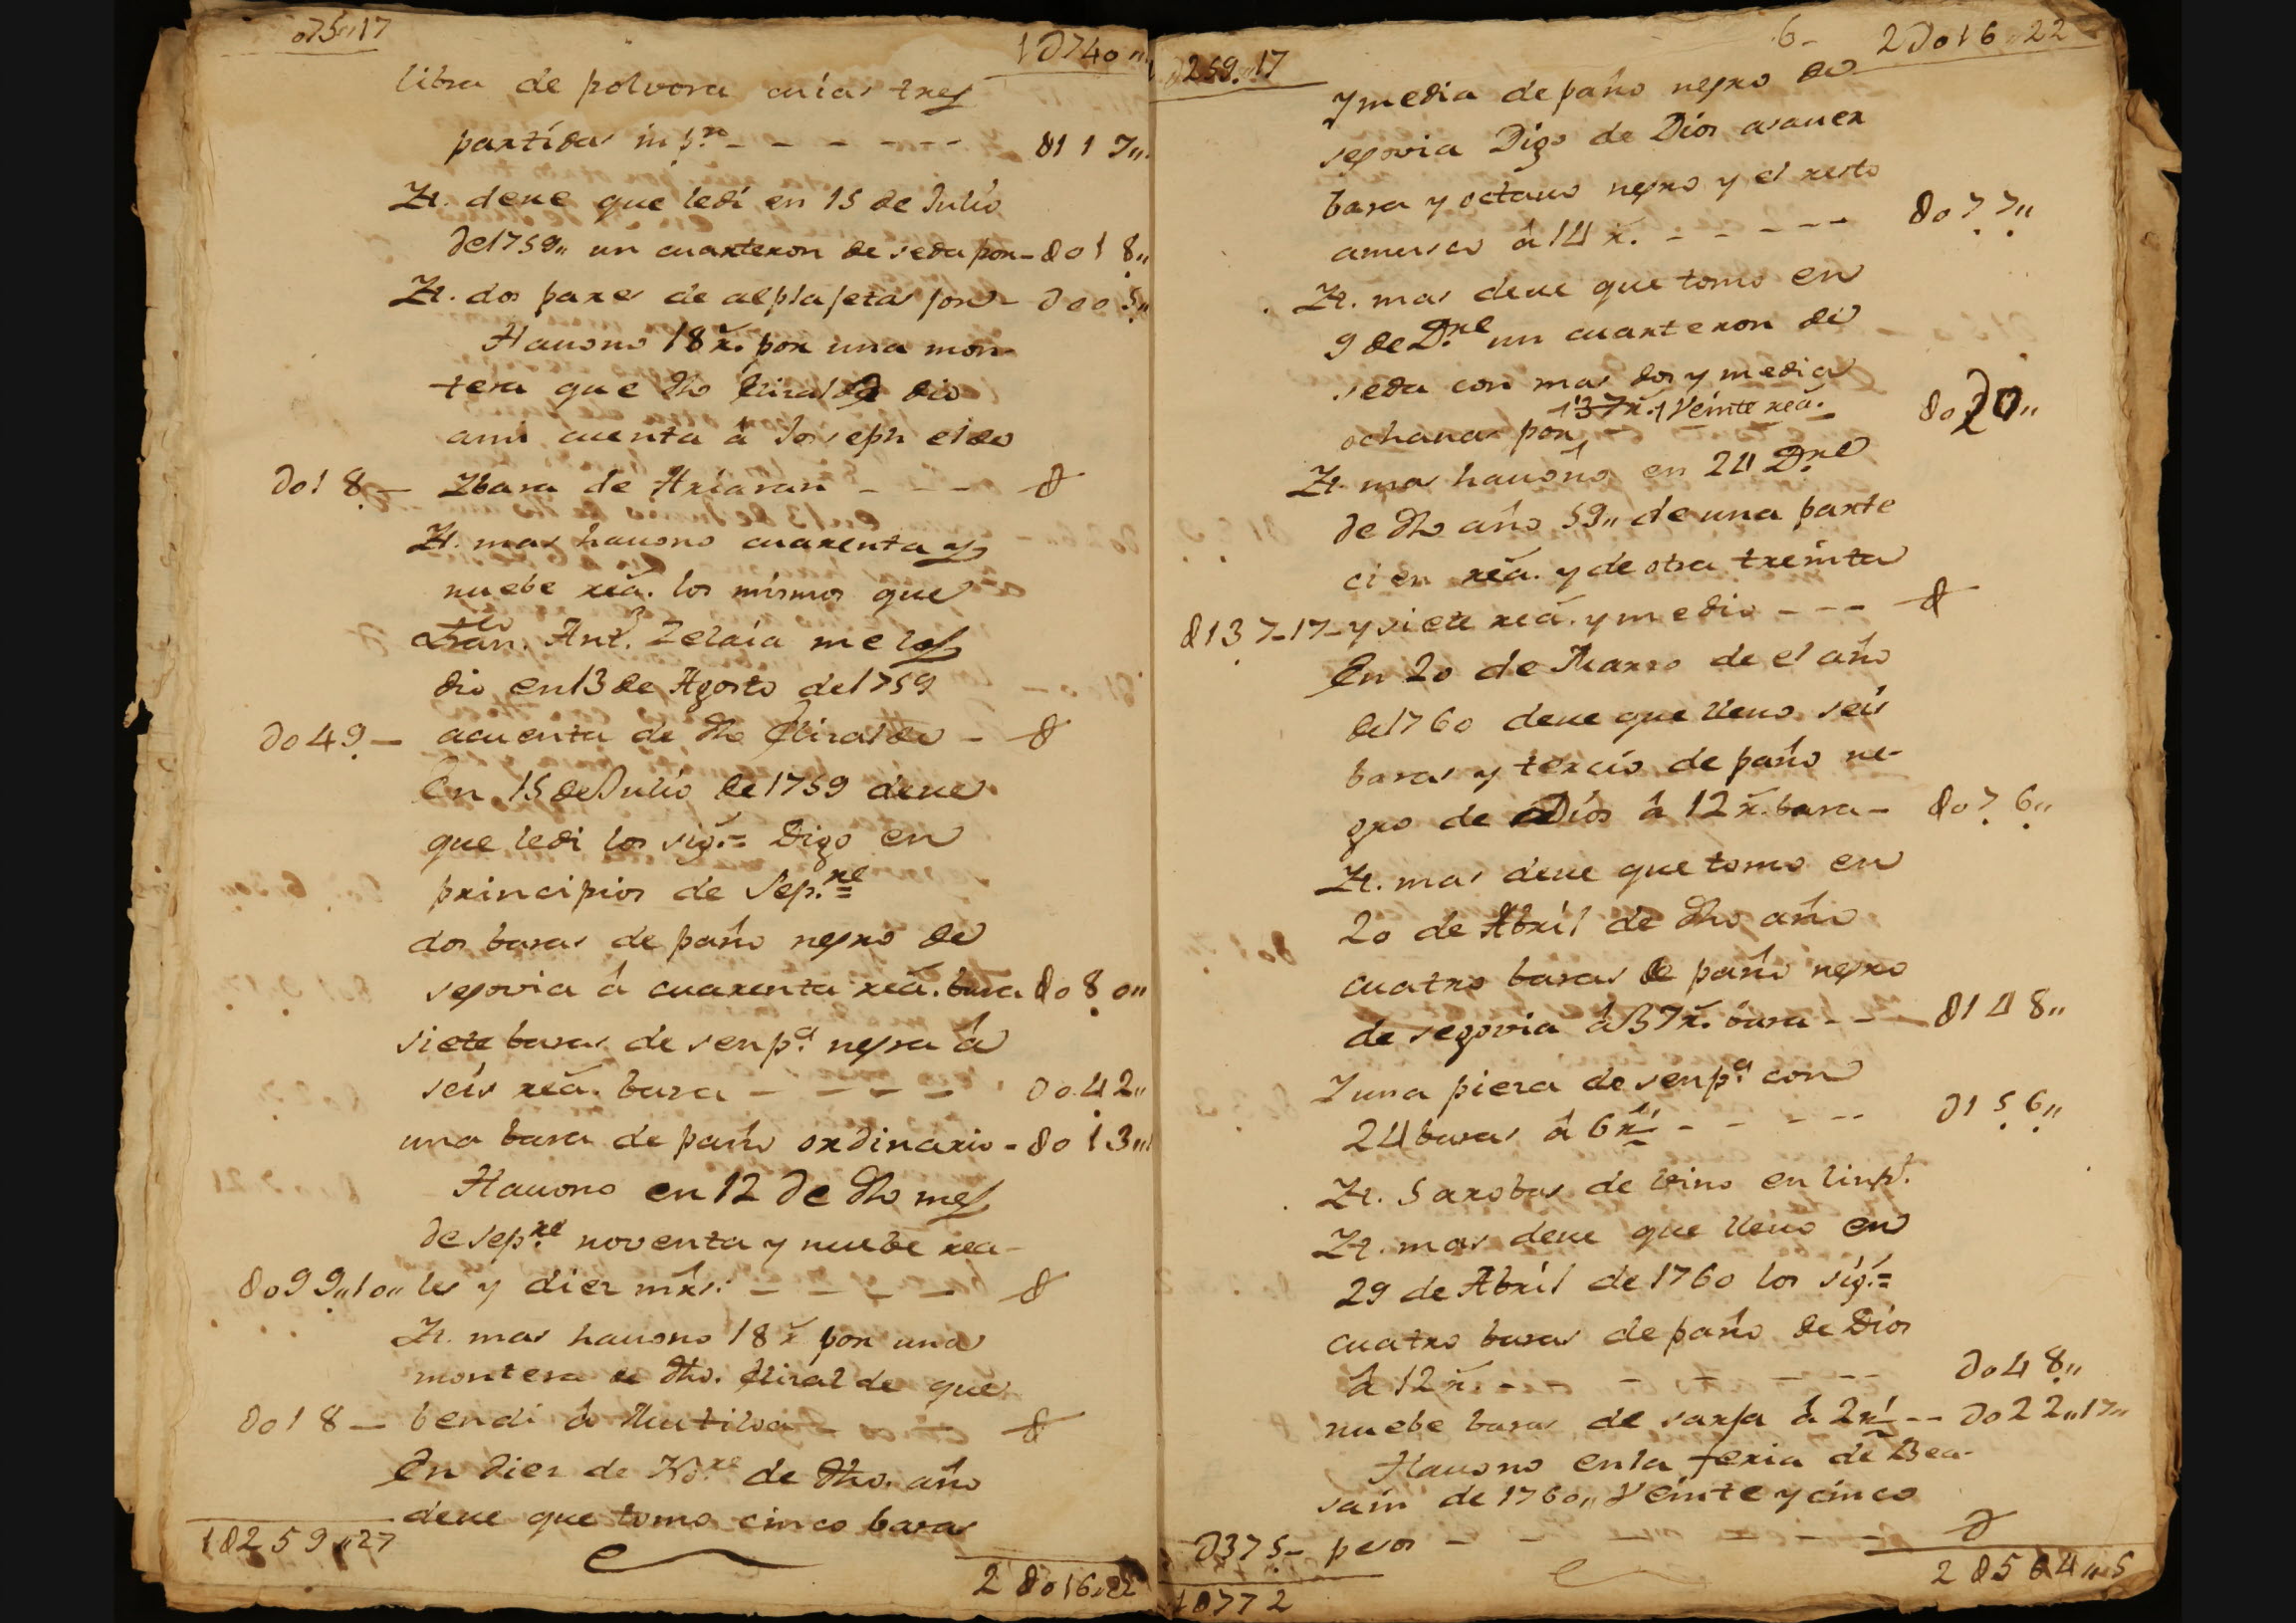 075,,17
1D740,,
libra de polvora cuias tres
partidas inp.n - - - - - - 8117,,
Yt. deue que ledi en 15 de Julio
de1759,, un cuarteron de seda por - do18,,
Yt. dos pares de alplajetas por - doo5,,
Hauono 18 r. por una mon-
tera que dho Eliralde dio
ami cuenta â Joseph el de
do18 - Ybara de Ariaran - - - d
Yt. mas hauono cuarenta y
nuebe rea. los mismos que
Fran.co Ant.o Zelaia me los
dio en13 de Agosto de1759
do49 - acuenta de dho Eliralde - d
En 15 de Julio de1759 deue
que ledi los sig.= Digo en
principios de Sep.re
dos baras de paño negro de
segovia â cuarenta rea. bara do80,,
siete baras de senp.a negra â
seis rea. bara - - - - do42,,
una bara de paño ordinario - do13,,
Hauono en12 de dho mes
de sep.re noventa y nuebe rea-
do99,,10,, les y diez mrs. - - - - d
Yt. mas hauono 18 r por una
montera de dho. Eliralde que
do18 - bendi â Mutiloa - - - d
En diez de No.re de dho. año
deue que tomo cinco baras
1d259,,27
2do16,,22
d259,,17
6-
2do16,,22
y media de paño negro de
segovia Digo de Dios asauer
bara y octauo negro y el resto
amusco â 14 r. - - - - - do77,,
Yt. mas deue que tomo en
9 de D.re un cuarteron de
seda con mas dos y media
137 r. Veinte rea.
ochauas por do20,,
Yt. mas hauono en 24 D.re
de dho año 59,, de una parte
cien rea. y de otra treinta
d137-17- y siete rea. y medio - - - d
En 20 de Marzo de el año
de1760 deue que lleuo seis
baras y tercio de paño ne-
gro de Dios â 12 r. bara - do76,,
Yt. mas deue que tomo en
20 de Abril de dho año
cuatro baras de paño negro
de segovia â 37 r. bara - - - d148,,
Yuna pieza de senp.a con
24 baras â 6 r.1/2 - - - - - d156,,
Yt. 5 arobas de vino en linp.
Yt. mas deue que lleuo en
29 de Abril de 1760 los sig.=
cuatro baras de paño de Dios
â 12 r. - - - - - - do48,,
nuebe baras de sarja â 2 r 1/2 - - do22,,17,,
Hauono enla feria de Bea-
sain de 1760,, Veinte y cinco
d375- pesos - - - - - - d
1d772
2d504,,5